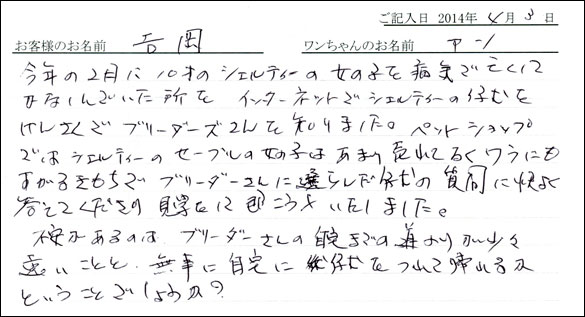 ご記入日 2014年 4月 3日
お客様のお名前 吉岡 ワンちゃんのお名前 アン
今年の2月に10才のシェルティーの女の子を病気で亡くして
かなしんでいた所をインターネットでシェルティーの仔犬を
けんさくでブリーダーズさんを知りました。ペットショップ
ではシェルティーのセーブルの女の子はあまり売れてなくワラにも
すがるきもちでブリーダーさんに選らんだ仔犬の質問に快よく
答えてくださり見学をに行こうといたしました。
不安があるのは、ブリーダーさんの自宅までの道のりが少々
遠いことと、無事に自宅に仔犬をつれて帰れるか
ということでしょうか?